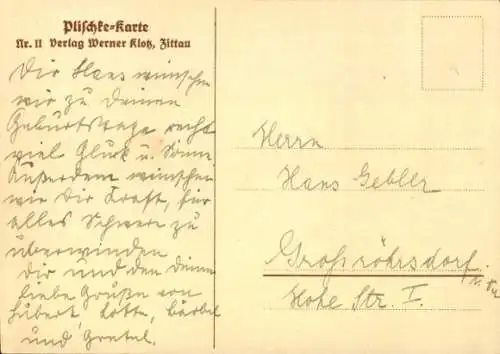 Plischke=Karte
Nr. 11 Verlag Werner Klotz, Zittau
Dir Hans wünschen
wir zu Deinem
Geburtstage recht
viel Glück u. Sonne.
Außerdem wünschen
wir Dir Kraft, für
alles Schwere zu
überwinden
Dir und den Deinen
liebe Grüße von
Hubert Lotte, Bärbel
und Gretel.
Herrn
Hans Gebler
Großröhrsdorf
Hohe Str. I.